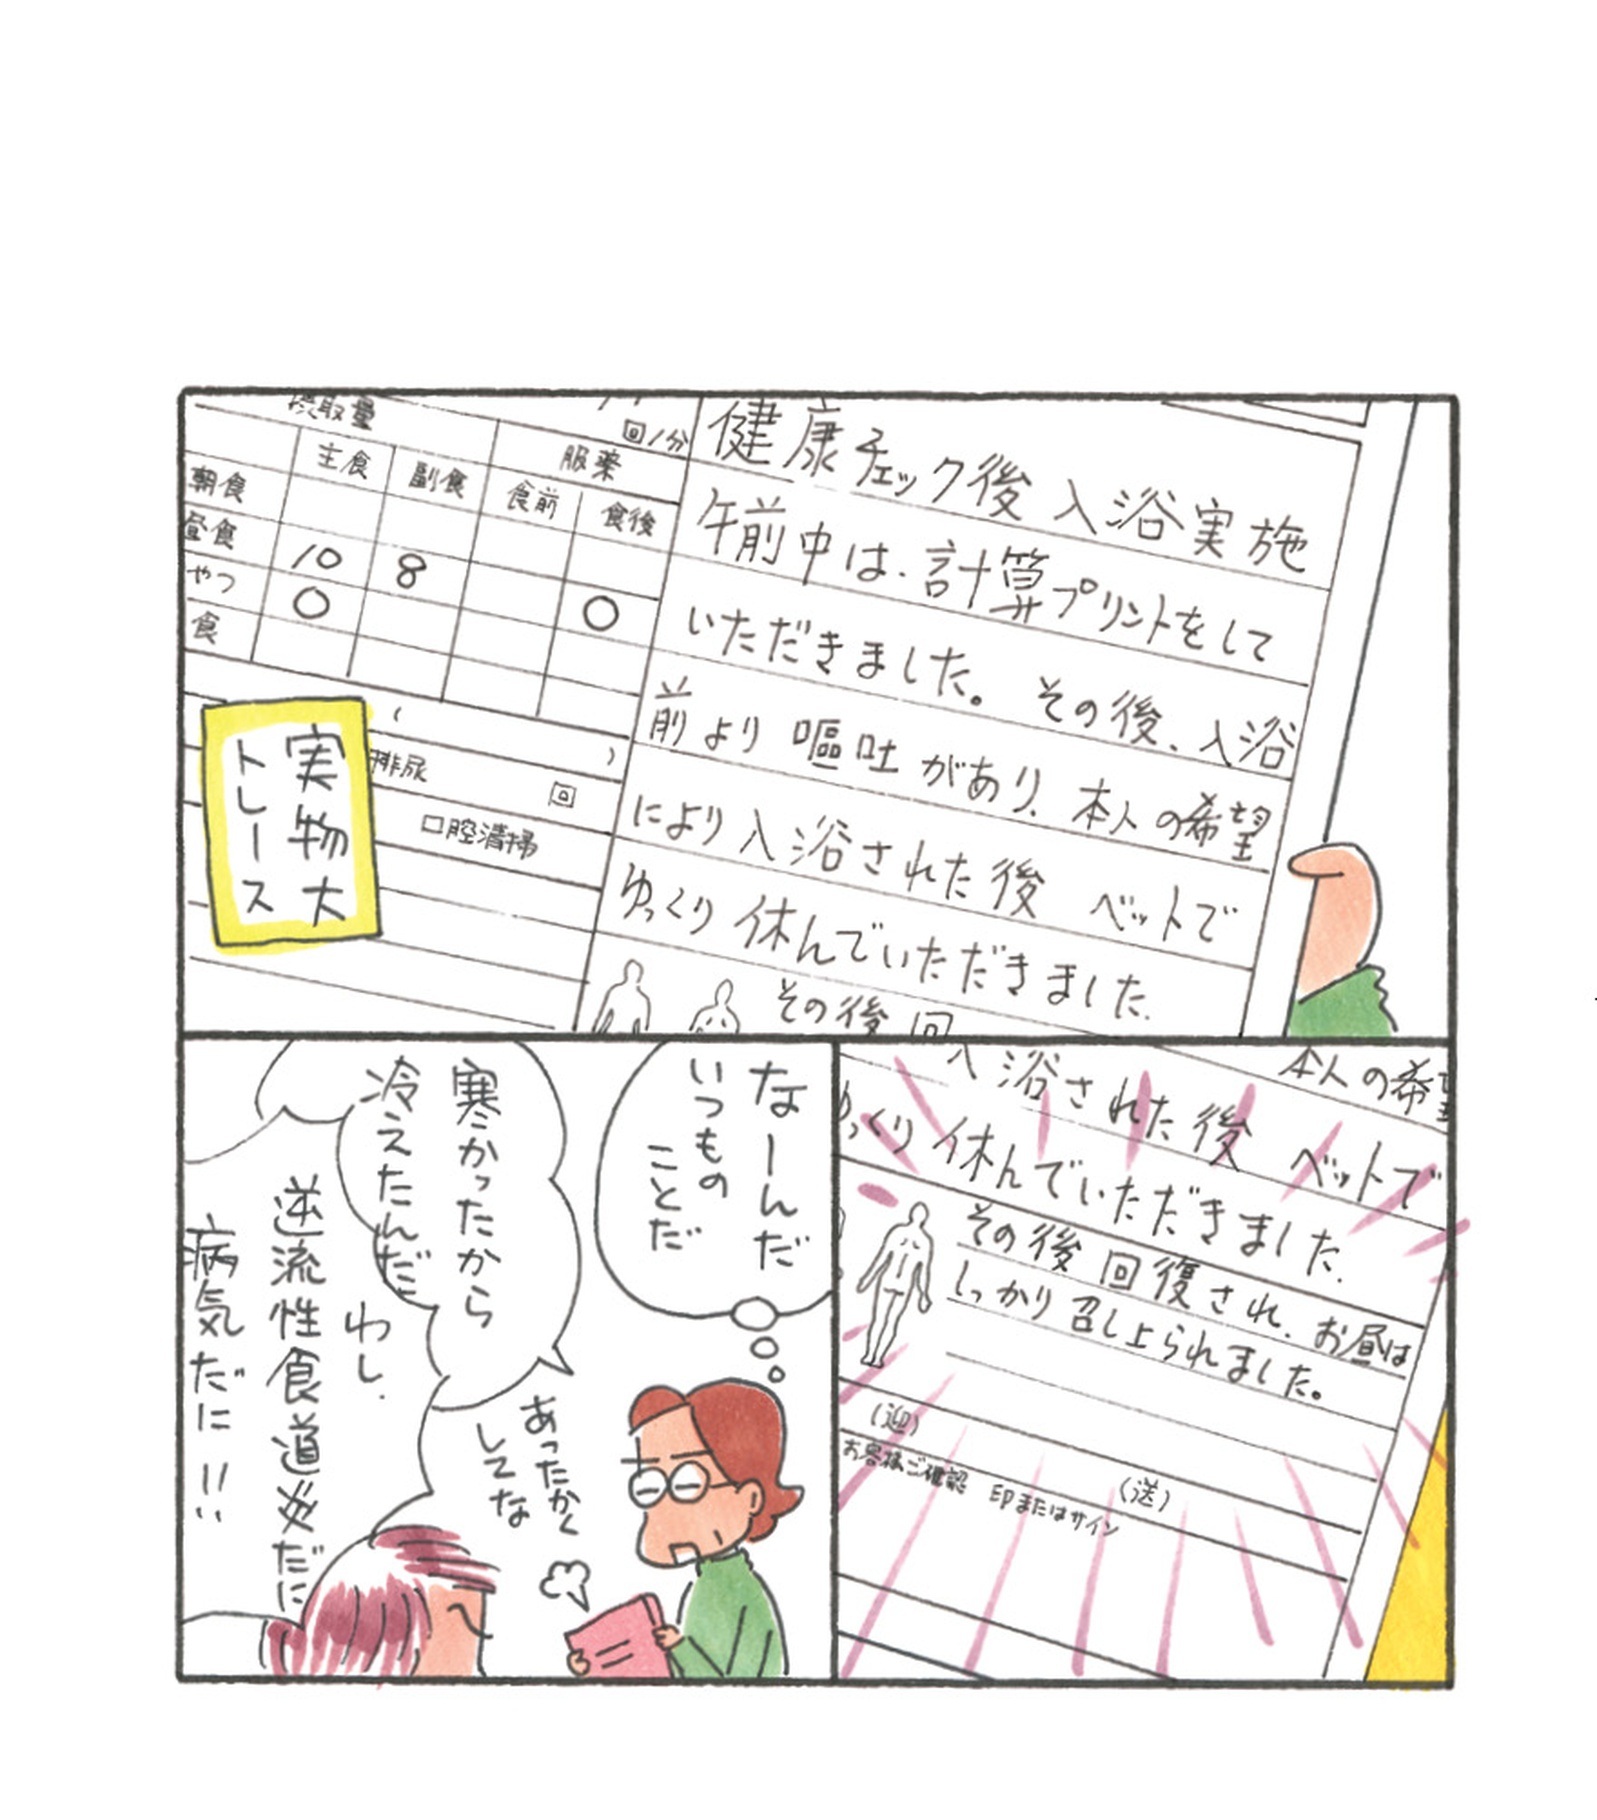 摂取量
回/分
主食
副食
服薬
食前
食後
朝食
昼食
10
8
やつ
○
○
食
(
)
排尿
回
口腔清掃
実物大
トレース
健康チェック後 入浴実施
午前中は、計算プリントをして
いただきました。その後、入浴
前より 嘔吐があり、本人の希望
により入浴された後 ベットで
ゆっくり休んでいただきました。
その後 回
本人の希望
入浴された後 ベットで
ゆっくり休んでいただきました。
その後 回復され、お昼は
しっかり召し上られました。
(迎)
(送)
お客様ご確認 印またはサイン
なーんだ
いつもの
ことだ
あったかく
してな
寒かったから
冷えたんだ
わし、
逆流性食道炎だに
病気だに!!